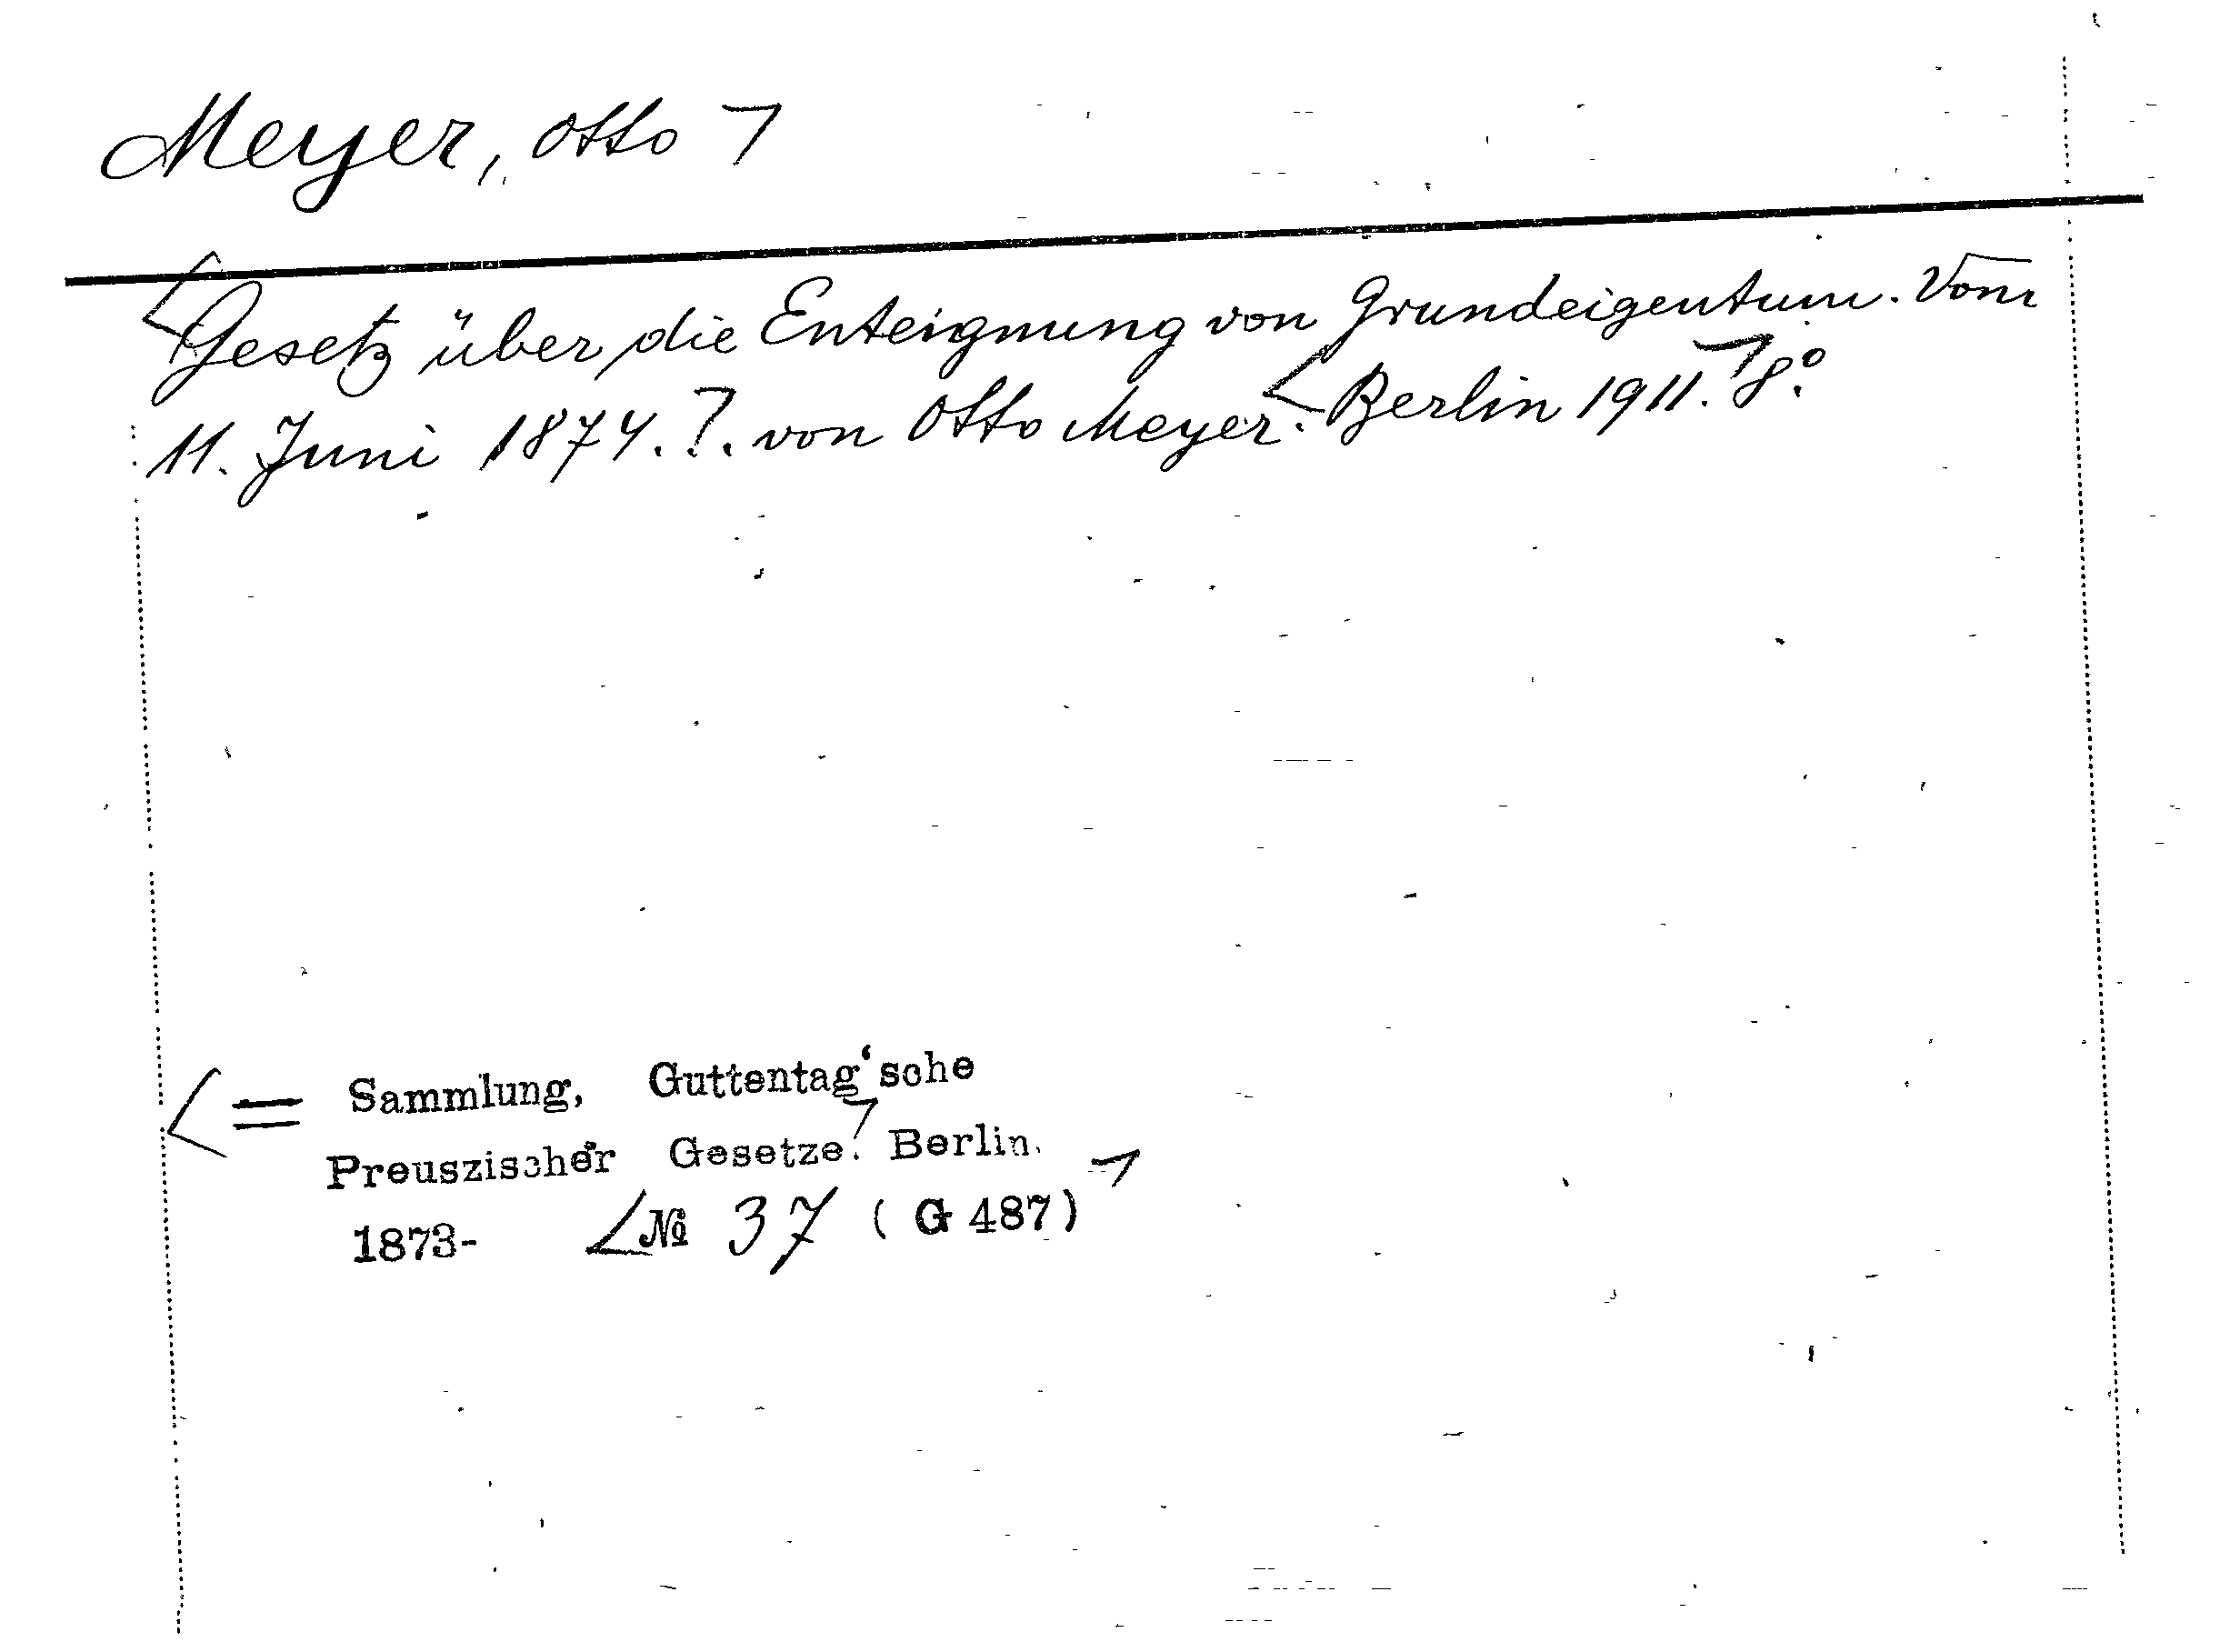 Meyer, Otto
Gesetz über die Enteignung von Grundeigentum. Vom
11. Juni 1874. . . von Otto Meyer. Berlin 1911. 8.°
= Sammlung, Guttentag'sche
Preuszischer Gesetze. Berlin.
1873- № 37 (G 487)